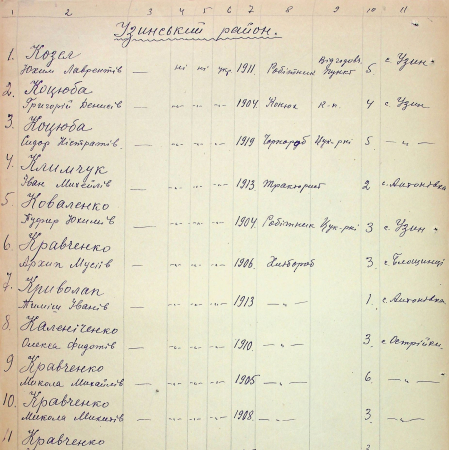 1 2 3 4 5 6 7 8 9 10 11
Узинський район.
1. Козел
Юхим Лаврентів — ні ні укр 1911. Робітник Відгодов. пункт 5 с. Узин
2. Коцюба
Григорій Денисів — -"- -"- -"- 1904 Конюх к-п. 4 с. Узин
3. Коцюба
Сидор Калістратів. — -"- -"- -"- 1919 Чорнороб Цук-рні 5 -"-
4. Климчук
Іван Михайлів — -"- -"- -"- 1913 Тракторист 2 с. Антонівка
5 Коваленко
Юхимів — -"- -"- -"- 1904 Робітник Цук-рні 3 с. Узин
6. Кравченко
Архип Мусіїв — -"- -"- -"- 1906. Хлібороб 3. с. Блощинці
7. Криволап
Іванів — -"- -"- -"- 1913 -"- 1. с. Антонівка
8. Каленіченко
Олекса Федотів — -"- -"- -"- 1910. -"- 3. с. Острійки.
9 Кравченко
Микола Михайлів — -"- -"- -"- 1905 -"- 6. -"-
10. Кравченко
Микола Микитів — -"- -"- -"- 1908. -"- 3. -"-
11 Кравченко